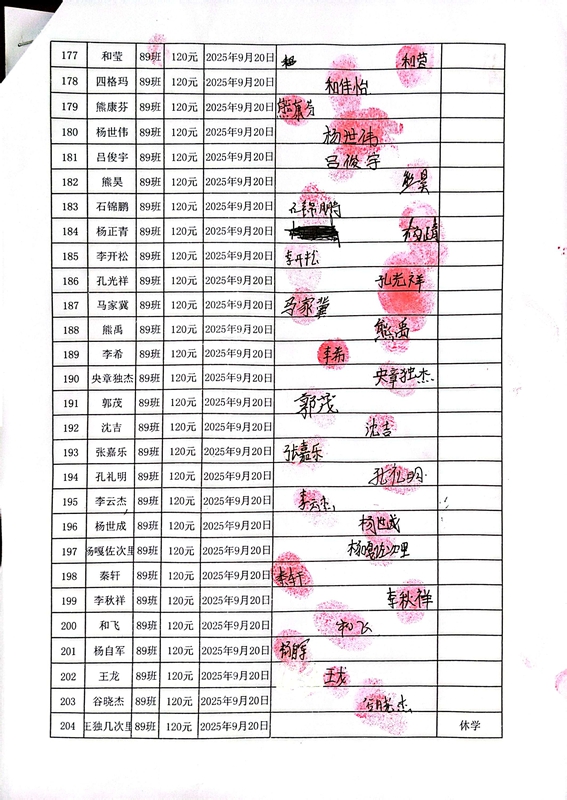 177 和莹 89班 120元 2025年9月20日 和莹
178 四格玛 89班 120元 2025年9月20日 和佳怡
179 熊康芬 89班 120元 2025年9月20日 熊康芬
180 杨世伟 89班 120元 2025年9月20日 杨世伟
181 吕俊宇 89班 120元 2025年9月20日 吕俊宇
182 熊昊 89班 120元 2025年9月20日 熊昊
183 石锦鹏 89班 120元 2025年9月20日 石锦鹏
184 杨正青 89班 120元 2025年9月20日
185 李开松 89班 120元 2025年9月20日 李开松
186 孔光祥 89班 120元 2025年9月20日 孔光祥
187 马家冀 89班 120元 2025年9月20日 马家冀
188 熊禹 89班 120元 2025年9月20日 熊禹
189 李希 89班 120元 2025年9月20日 李希
190 央章独杰 89班 120元 2025年9月20日 央章独杰
191 郭茂 89班 120元 2025年9月20日 郭茂
192 沈吉 89班 120元 2025年9月20日 沈吉
193 张嘉乐 89班 120元 2025年9月20日 张嘉乐
194 孔礼明 89班 120元 2025年9月20日 孔礼明
195 李云杰 89班 120元 2025年9月20日 李云杰
196 杨世成 89班 120元 2025年9月20日 杨世成
197 杨嘎佐次里 89班 120元 2025年9月20日 杨嘎佐次里
198 秦轩 89班 120元 2025年9月20日 秦轩
199 李秋祥 89班 120元 2025年9月20日 李秋祥
200 和飞 89班 120元 2025年9月20日 和飞
201 杨自军 89班 120元 2025年9月20日 杨自军
202 王龙 89班 120元 2025年9月20日 王龙
203 谷晓杰 89班 120元 2025年9月20日 谷晓杰
204 王独几次里 89班 120元 2025年9月20日 休学